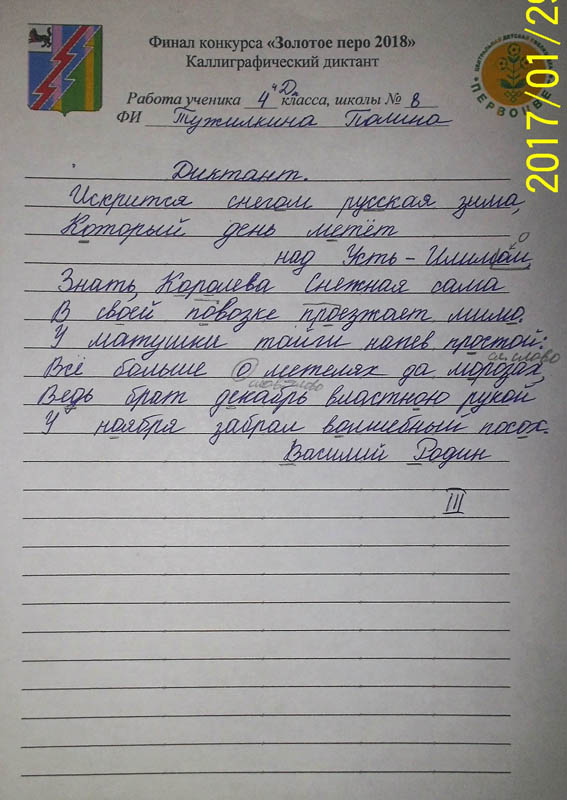 Финал конкурса «Золотое перо 2018»
Каллиграфический диктант
Работа ученика 4 "Д" класса, школы № 8
ФИ Тужилкина Полина
ЦЕНТРАЛЬНАЯ ДЕТСКАЯ
ПЕРВОЦВЕТ
2017/01/29
Диктант.
Искрится снегом русская зима,
Который день метёт
над Усть-Илимом
Знать, Королева Снежная сама
В своей повозке проезжает мимо.
У матушки тайги напев простой:
Всё больше о метелях да морозах,
Ведь брат декабрь властною рукой
У ноября забрал волшебный посох.
Василий Родин
III